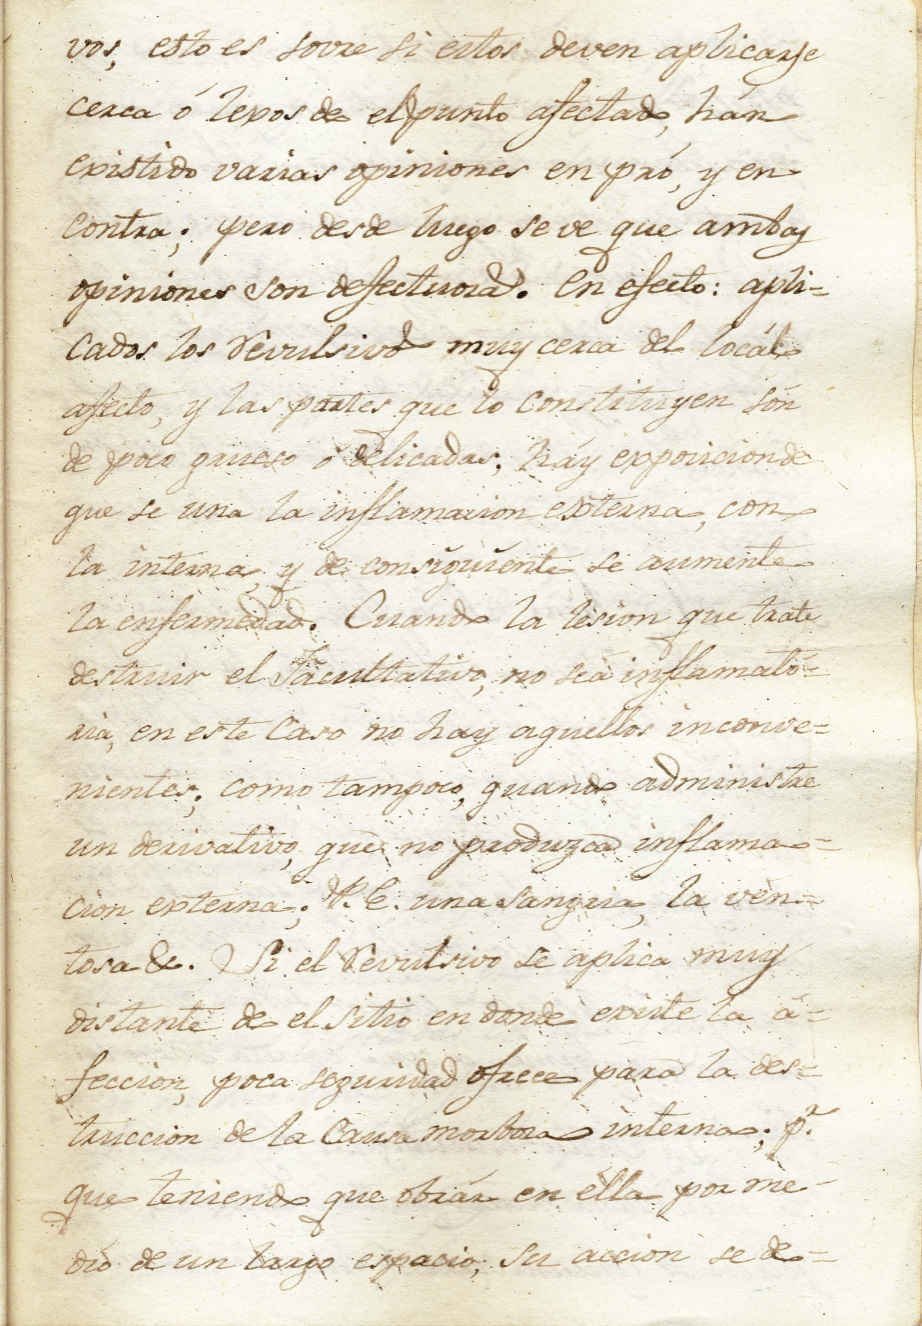 vos, esto es sovre si estos deven aplicarse
cerca ó lexos de el punto afectado, hán
existido varias opiniones en pró, y en
contra; pero desde luego se ve que ambas
opiniones son defectuosas. En efecto: apli=
cados los revulsivos muy cerca del locál
afecto, y las partes que lo constituyen són
de poco grueso ó delicadas; háy exposicion de
que se una la inflamacion externa, con
la interna, y de consiguiente se aumente
la enfermedad. Cuando la lesion que trate
destruir el Facultativo, no seá inflamató=
ria, en este caso no hay aquellos inconve=
nientes; como tampoco, quando administre
un derivativo, que no produzca inflama=
cion externa; P. E. una sangria, la ven=
tosa &. Si el revulsivo se aplica muy
distante de el sitio en donde existe la á=
feccion, poca seguridad ofrece para la des=
truccion de la causa morbosa interna; p.r
que teniendo que obrár en élla por me=
dio de un largo espacio, su accion se de=